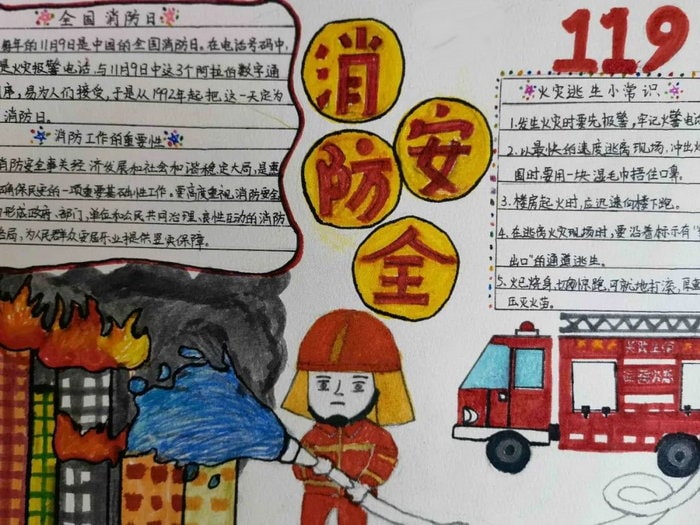 全国消防日
每年的11月9日是中国的全国消防日。在电话号码中,
是火灾报警电话,与11月9日中这3个阿拉伯数字通
序,易为人们接受,于是从1992年起,把这一天定为
消防日。
消防工作的重要性
消防安全事关经济发展和社会和谐稳定大局,是惠
确保民安的一项重要基础性工作,要高度重视消防安全
形成政府、部门、单位和公民共同治理、良性互动的消防
格局,为人民群众安居乐业提供坚实保障。
消
防
安
全
119
火灾逃生小常识
1.发生火灾时要先报警,牢记火警电话
2.以最快的速度逃离现场,冲出火
围时要用一块湿毛巾捂住口鼻。
3.楼房起火时,应迅速向楼下跑。
4.在逃离火灾现场时,要沿着标示有"
出口"的通道逃生。
5.火已烧身切勿惊跑,可就地打滚,
压灭火苗。